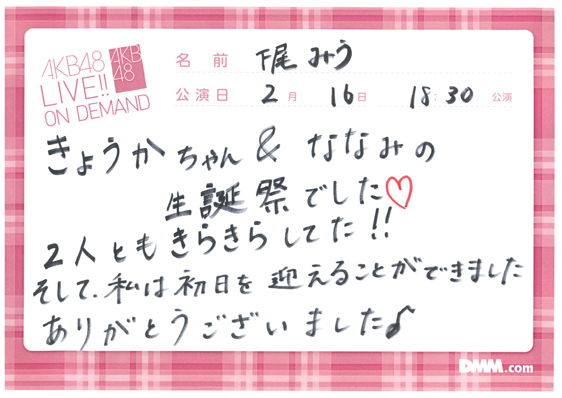 AKB48
LIVE!!
ON DEMAND
AKB
48
名前 下尾 みう
公演日 2月 16日 18:30 公演
きょうかちゃん & ななみの
生誕祭でした♡
2人ともきらきらしてた!!
そして、私は初日を迎えることができました
ありがとうございました♪
DMM.com